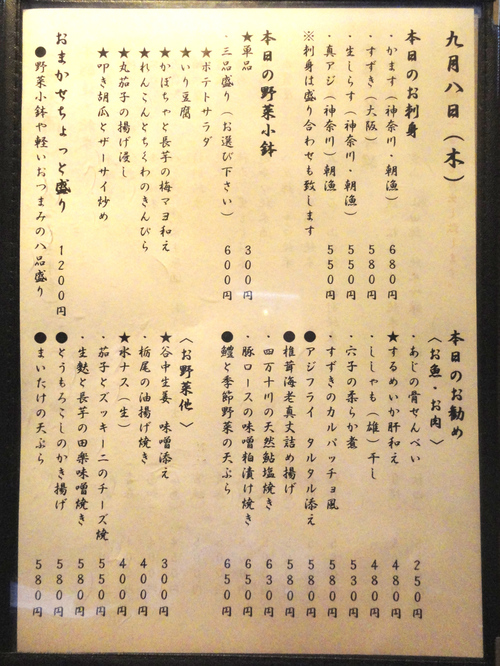 九月八日(木)
本日のお刺身
・かます(神奈川・朝漁) 680円
・すずき(大阪) 580円
・生しらす(神奈川・朝漁) 550円
・真アジ(神奈川)朝漁 550円
※刺身は盛り合わせも致します
本日の野菜小鉢
★単品 300円
・三品盛り(お選び下さい) 600円
★ポテトサラダ
★いり豆腐
★かぼちゃと長芋の梅マヨ和え
★れんこんとちくわのきんぴら
★丸茄子の揚げ浸し
★叩き胡瓜とザーサイ炒め
おまかせちょっと盛り 1200円
●野菜小鉢や軽いおつまみの八品盛り
本日のお勧め
〈お魚・お肉〉
・あじの骨せんべい 250円
★するめいか肝和え 480円
・ししゃも(雄)干し 480円
・穴子の柔らか煮 530円
・すずきのカルパッチョ風 580円
●アジフライ タルタル添え 580円
●椎茸海老真丈詰め揚げ 580円
・四万十川の天然鮎塩焼き 630円
・豚ロースの味噌粕漬け焼き 650円
●鱧と季節野菜の天ぷら 650円
〈お野菜他〉
★谷中生姜 味噌添え 300円
・栃尾の油揚げ焼き 400円
★水ナス(生) 400円
・茄子とズッキーニのチーズ焼 550円
・生麩と長芋の田楽味噌焼き 580円
●とうもろこしのかき揚げ 580円
●まいたけの天ぷら 580円